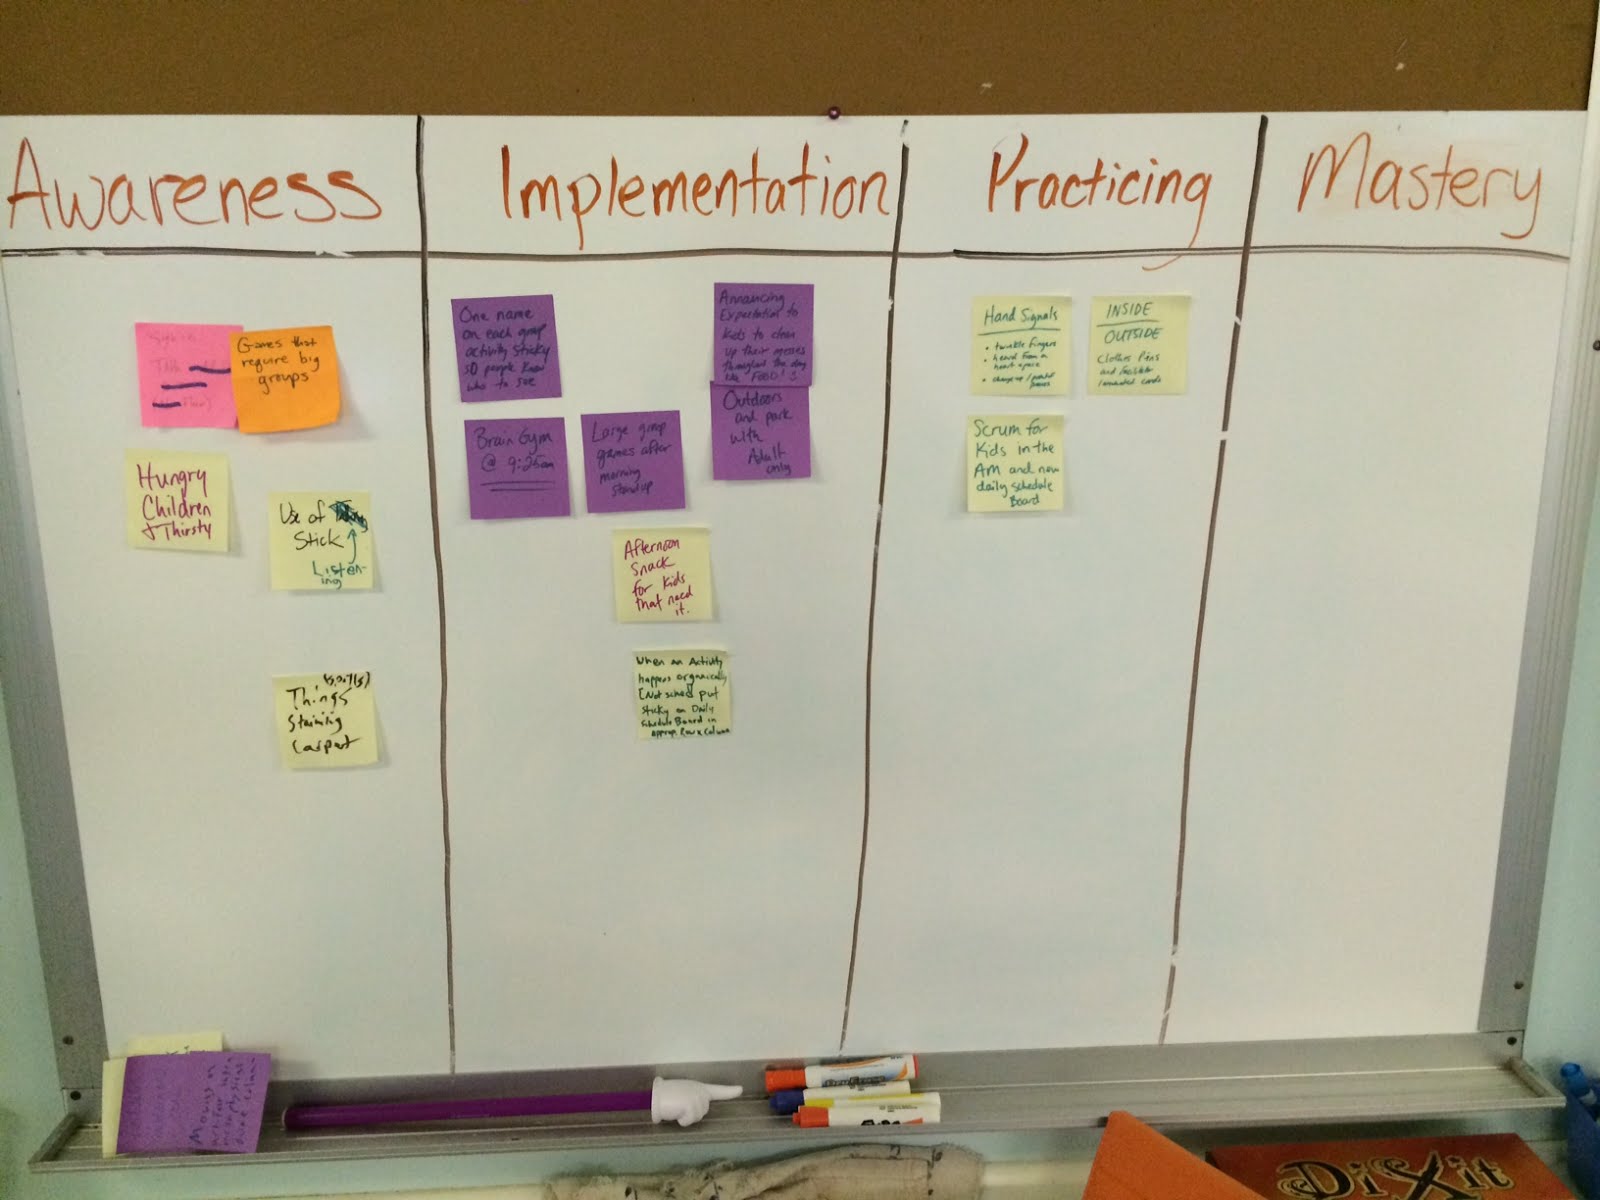 Awareness
Implementation
Practicing
Mastery
Games that
require big
groups
Hungry
Children
+ Thirsty
Use of
Stick
Listen-
ing
(spills)
Things
Staining
Carpet
One name
on each group
activity sticky
so people know
who to see
Announcing
Expectation to
Kids to clean
up their messes
throughout the day
like FOOD!
Brain Gym
@ 9:25am
Large group
games after
morning
standup
Outdoors
and park
with
Adult
only
Afternoon
Snack
for kids
that need
it.
When an Activity
happens organically
[Not sched put
Sticky on Daily
Schedule Board in
approp. Row x Column
Hand Signals
• twinkle fingers
• heard from a
heart space
INSIDE
OUTSIDE
Clothes Pins
and
laminated cards
Scrum for
Kids in the
AM and new
daily schedule
Board
Dixit